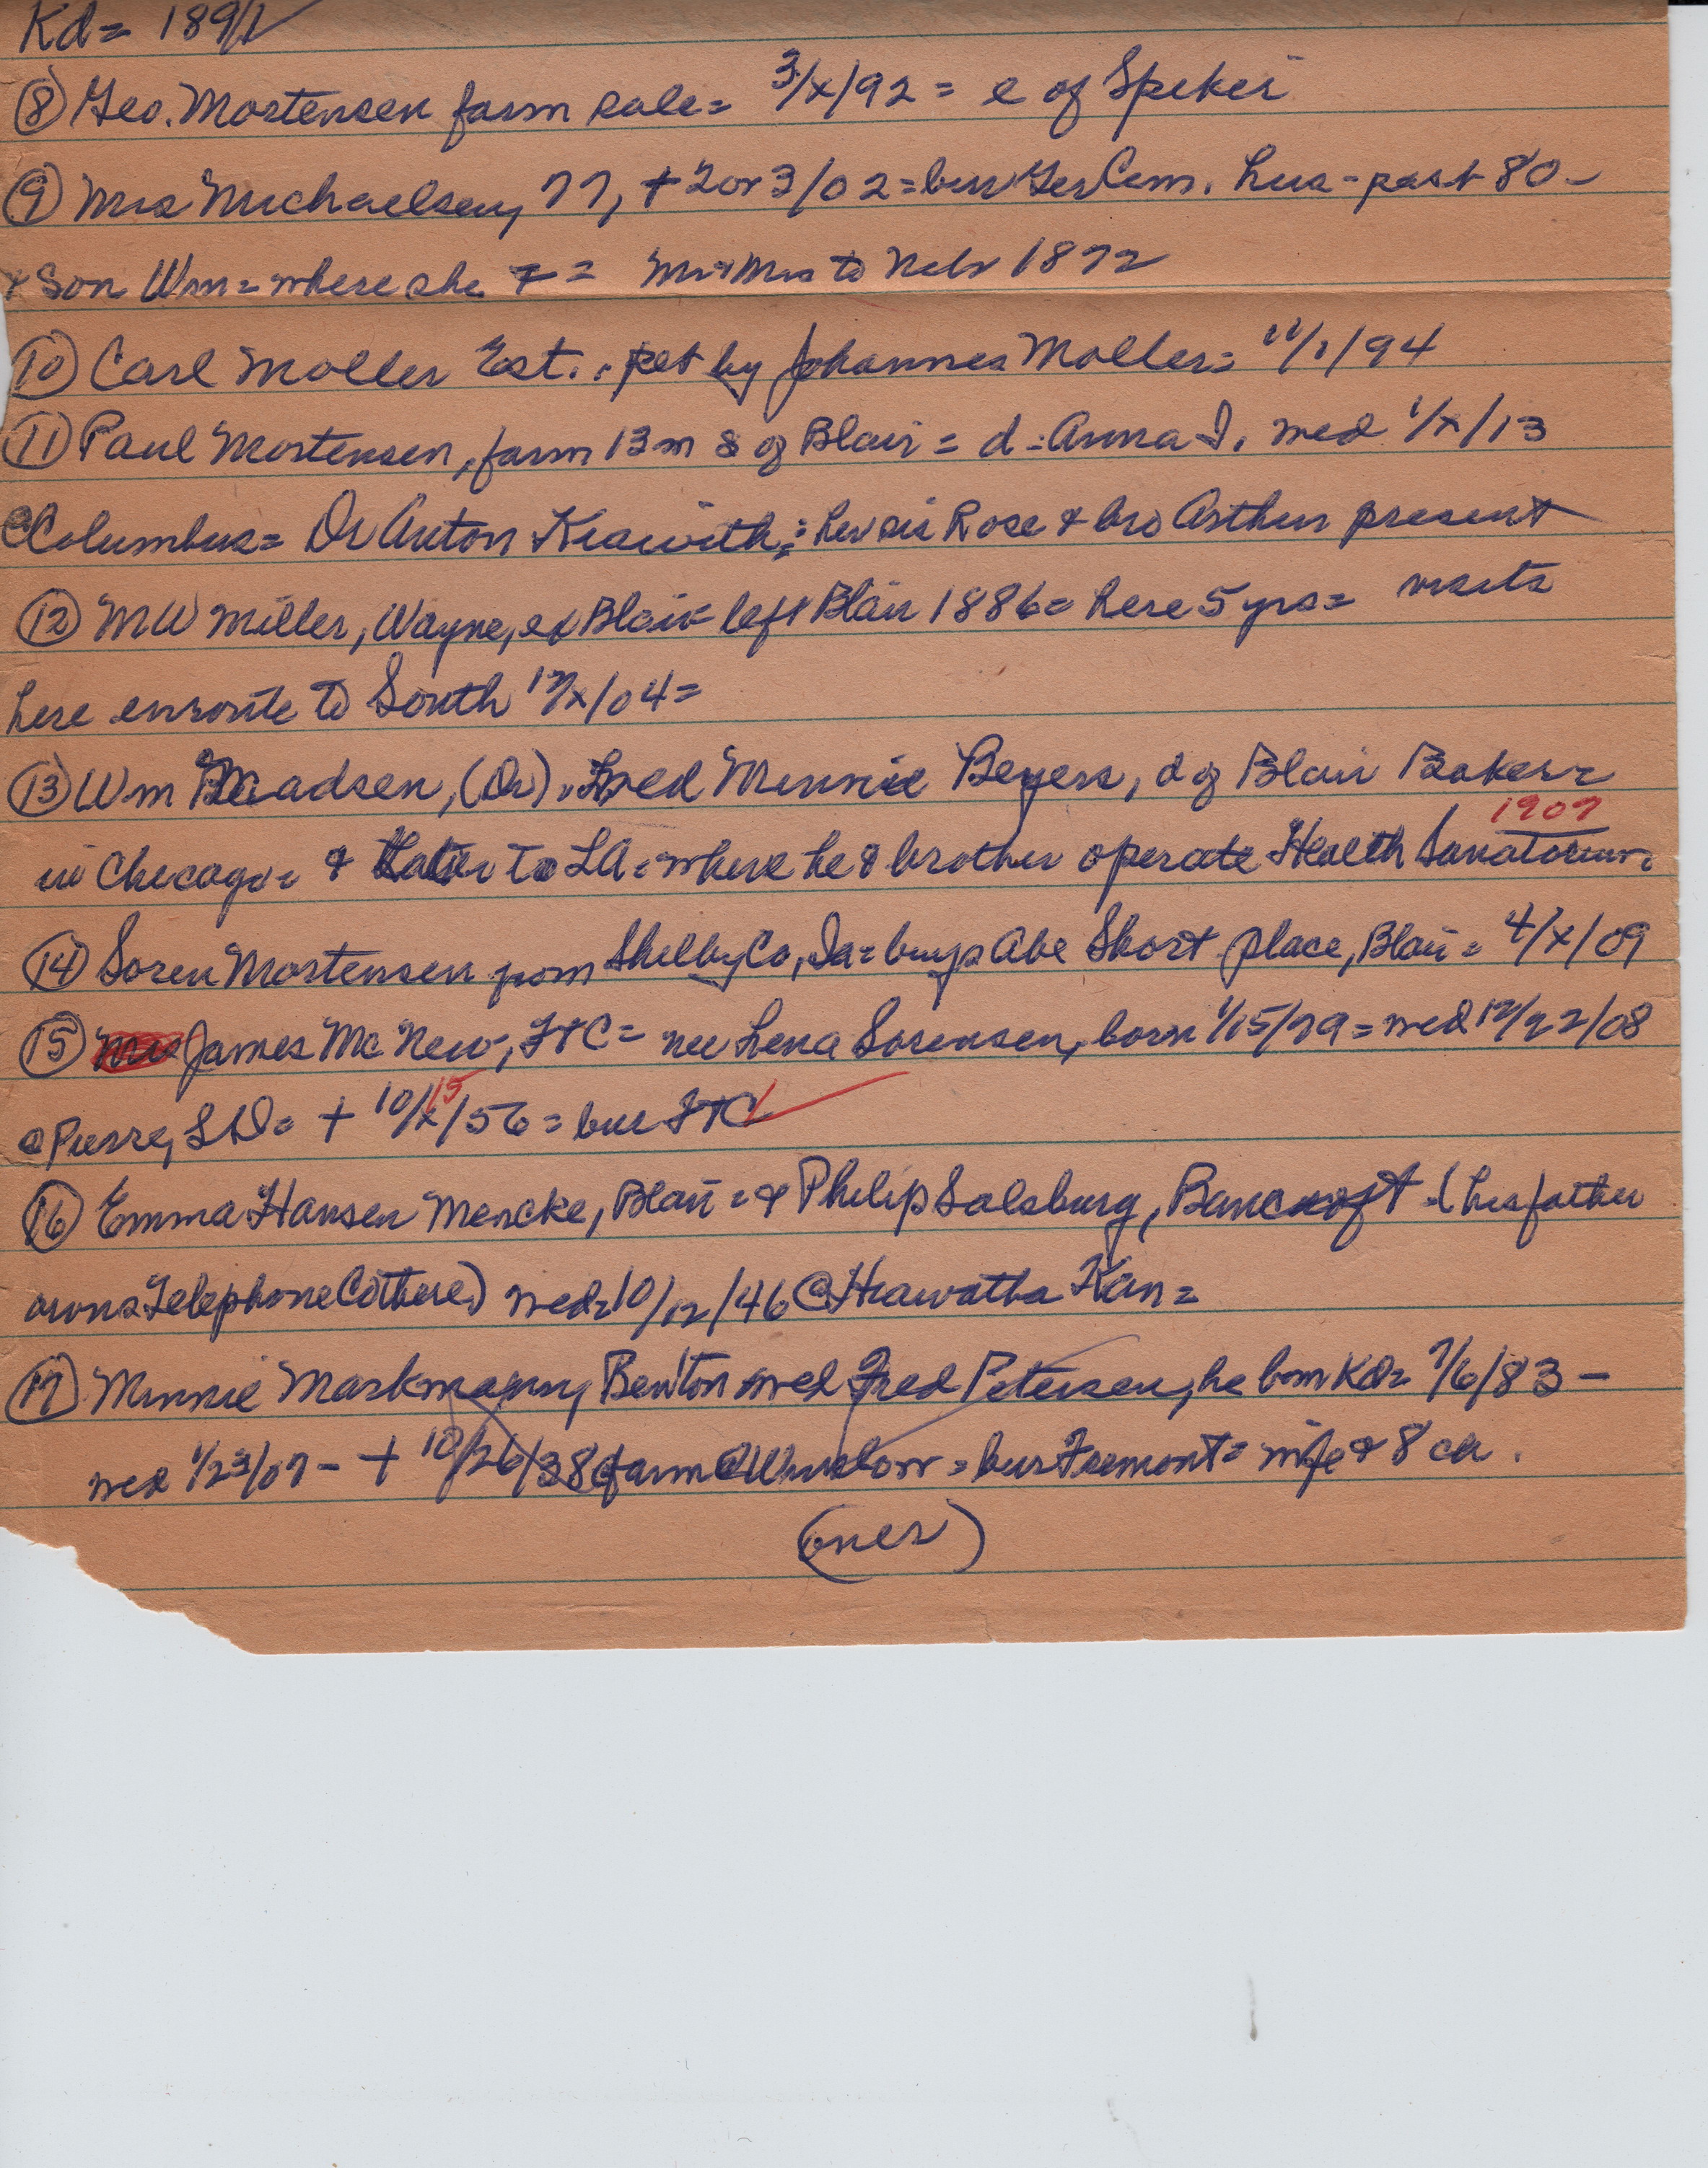 Kd = 1891
⑧ Geo. Mortensen farm sale = 3/x/92 = e of Spiker
⑨ Mrs Michaelsen, 77, + 2 or 3/02 = bur Ger Cem. hus - past 80 -
+ Son Wm = where she + = Mr + Mrs to Nebr 1872
⑩ Carl Moller Est. : pet by Johannes Moller = 11/1/94
⑪ Paul Mortensen, farm 13 m S of Blair = d: Anna I. wed 1/x/13
@ Columbus = Dr Anton : her sis Rose & bro Arthur present
⑫ MW Miller, Wayne, ex Blair = left Blair 1886 = here 5 yrs = visits
here enroute to South 12/x/04 =
⑬ Wm Madsen, (Dr). Wed Minnie Beyers, d of Blair Baker =
1907
in Chicago = & later to LA = where he & brother operate Health Sanatorium =
⑭ Soren Mortensen from Shelby Co, Ia = buys Abe Short place, Blair = 4/x/09
⑮ Mrs James Mc New, FtC = nee Lena Sorensen, born 1/15/79 = wed 12/22/08
15
@ Pierre, SD = + 10/x/56 = bur FtC
⑯ Emma Hansen Mencke, Blair = & Philip Salsburg, Bancroft (his father
owns Telephone Co there) wed = 10/12/46 @ Hiawatha Kan =
⑰ Minnie Markmann, Benton wed Fred Petersen, he born Kd = 7/6/83 -
wed 1/23/07 - + 10/26/38 @ farm @ Winslow = bur Fremont = wife & 8 ch.
(over)